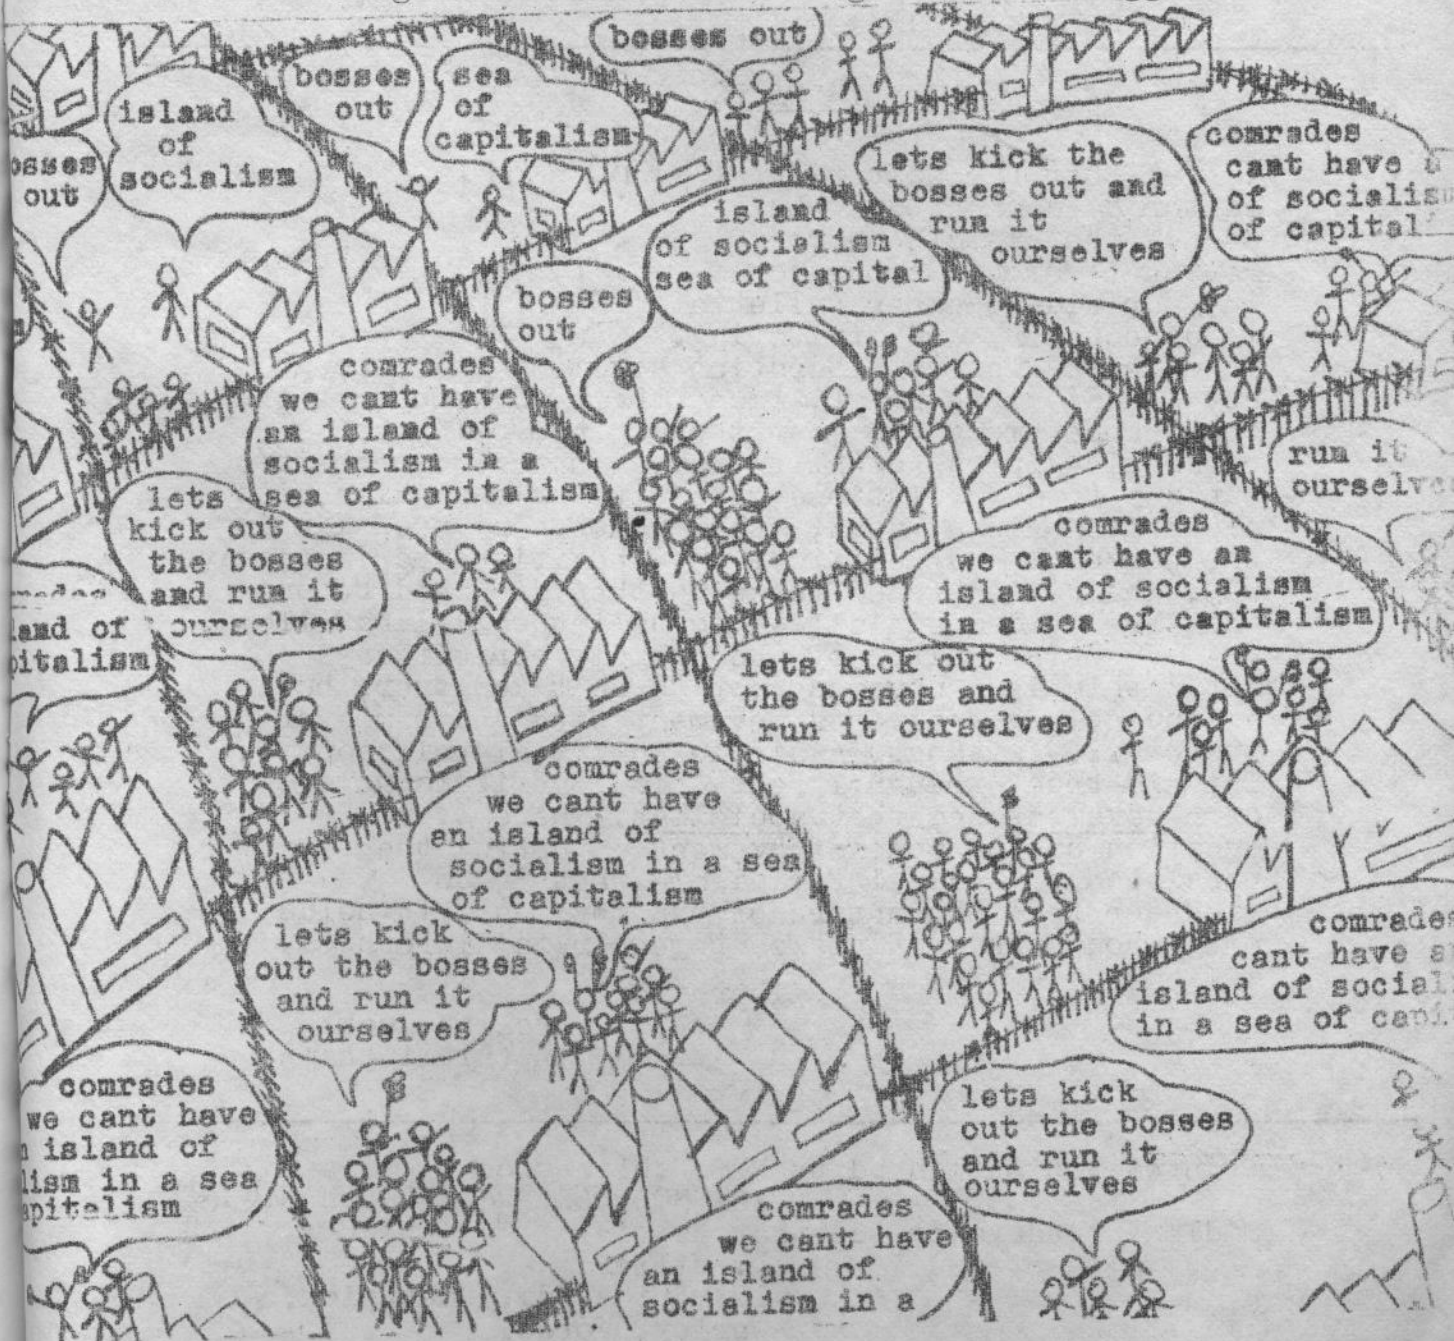 bosses out
bosses
out
sea
of
capitalism
island
of
socialism
out
lets kick the
bosses out and
run it
ourselves
comrades
cant have
of
of
island
of socialism
sea of capital
bosses
out
comrades
we cant have
an island of
socialism in a
sea of capitalism
run it
lets
kick out
the bosses
and run it
ourselves
comrades
we cant have an
island of socialism
in a sea of capitalism
of
lets kick out
the bosses and
run it ourselves
comrades
we cant have
an island of
socialism in a sea
of capitalism
lets kick
out the bosses
and run it
ourselves
comrades
cant have
island of
in a sea of
comrades
we cant have
island of
in a sea
lets kick
out the bosses
and run it
ourselves
comrades
we cant have
an island of
socialism in a